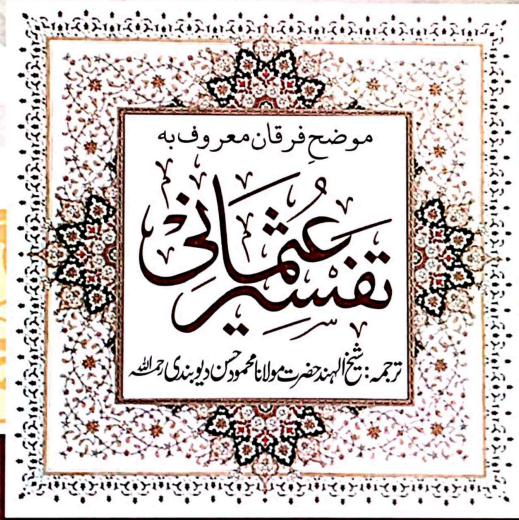 موضح فرقان معروف بہ
تفسیر عثمانی
ترجمہ: شیخ الہند حضرت مولانا محمود حسن دیوبندی رحمہ اللہ